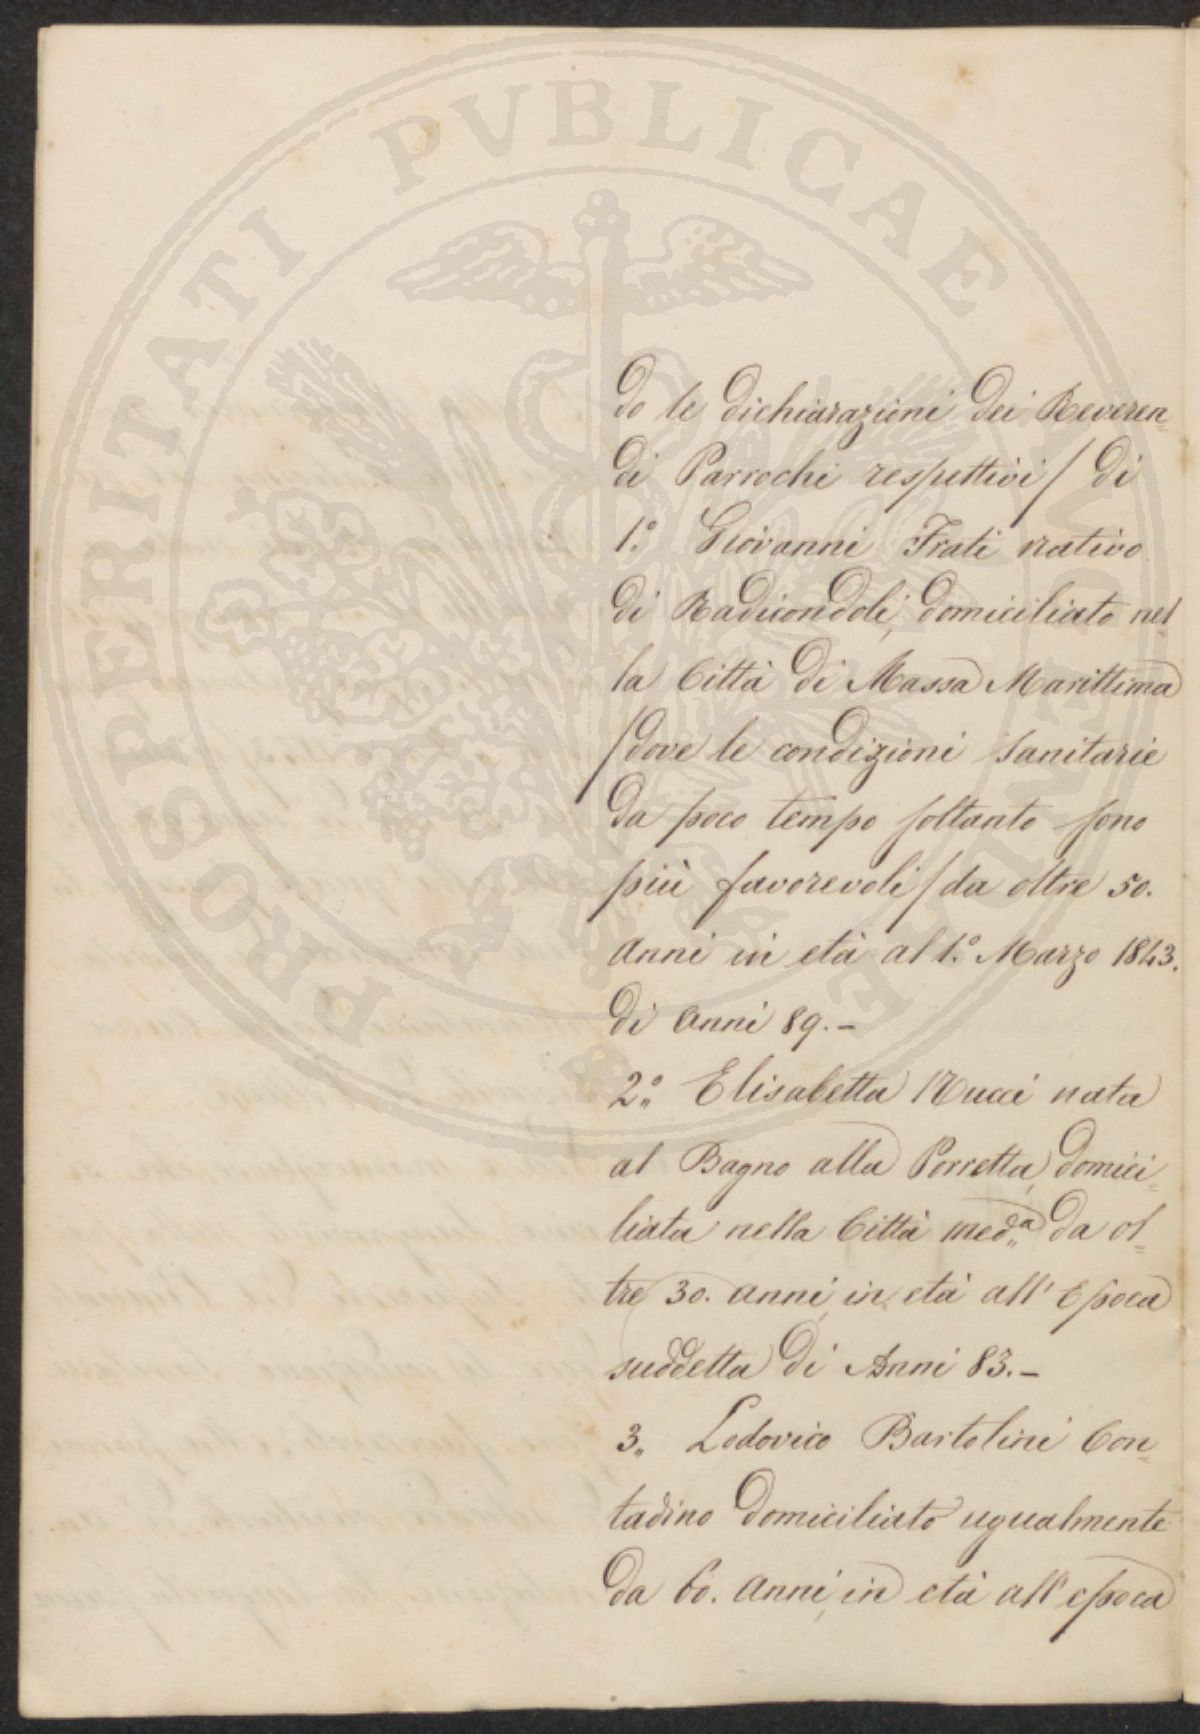 PROSPERITATI PVBLICAE AVGENDAE
do le dichiarazioni dei Reveren=
di Parrochi respettivi / di
1.° Giovanni Frati nativo
di Radicondoli, domiciliato nel=
la Città di Massa Marittima
/dove le condizioni sanitarie
da poco tempo soltanto sono
più favorevoli/ da oltre 50.
anni in età al 1.° Marzo 1843.
di anni 89.-
2.° Elisabetta Nucci nata
al Bagno alla Porretta, domici=
liata nella Città med.a da ol=
tre 30. anni, in età all' Epoca
suddetta di Anni 83.-
3. Lodovico Bartolini Con=
tadino domiciliato ugualmente
da 60. anni, in età all' epoca